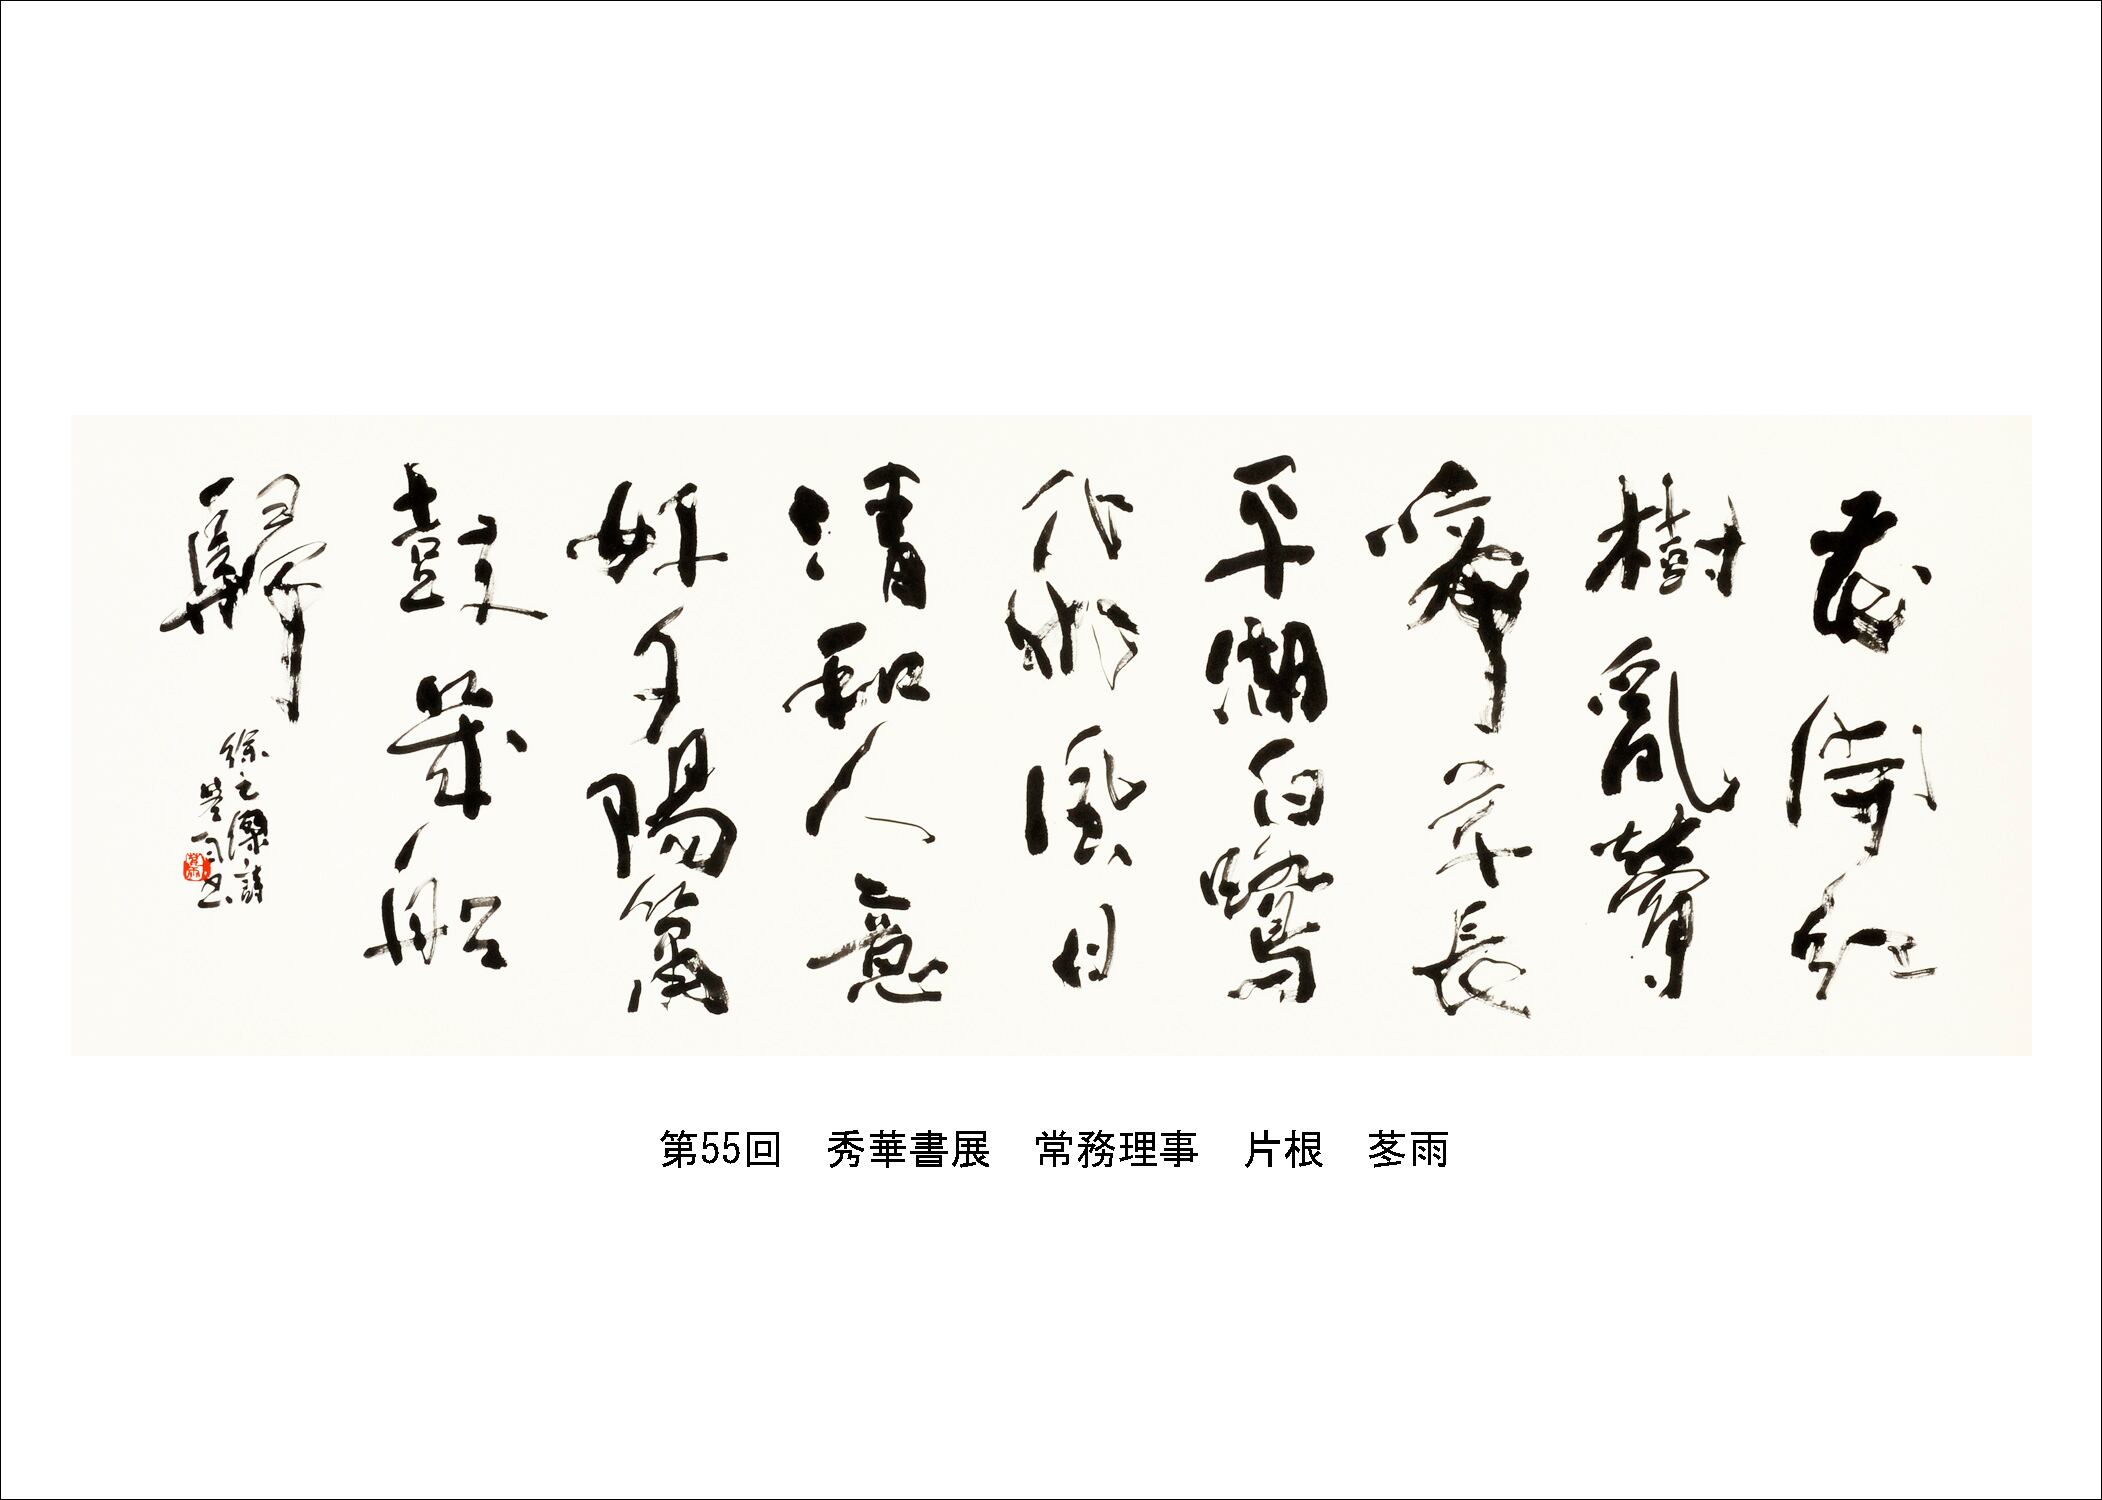 花開紅
樹亂鶯
啼草長
平湖白鷺
飛晴風日
清和人意
好夕陽簫
鼓幾船
歸
徐元傑詩
苳雨書
第55回　秀華書展　常務理事　片根　苳雨